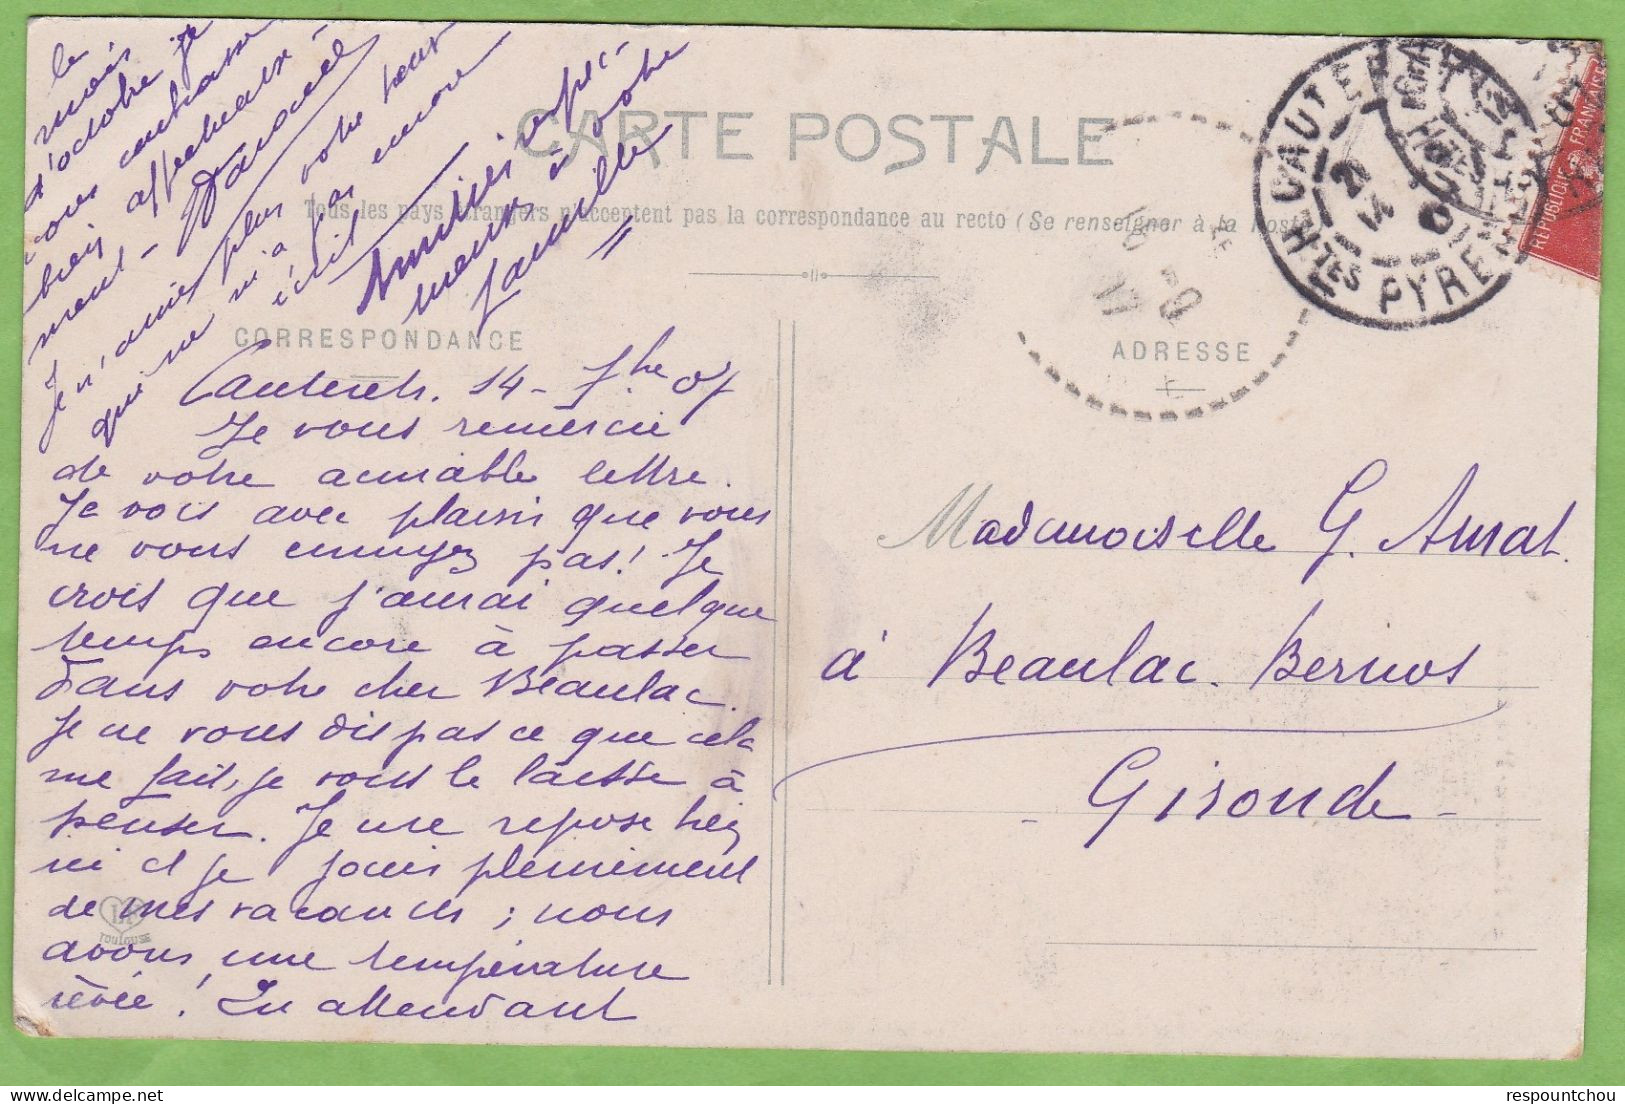 CARTE POSTALE
Tous les pays étrangers n'acceptent pas la correspondance au recto (Se renseigner à la Poste)
CORRESPONDANCE
ADRESSE
CAUTERETS
HTES PYRENEES
REPUBLIQUE FRANÇAISE
Cauterets. 14 - 7bre 07
Je vous remercie
de votre aimable lettre.
Je vois avec plaisir que vous
ne vous ennuyez pas! Je
crois que j'aurai quelque
temps encore à passer
dans votre cher Beaulac.
Je ne vous dis pas ce que cela
me fait, je vous le laisse à
penser. Je me repose bien
ici et je jouis pleinement
de mes vacances; nous
avons une température
rêvée! En attendant
le
mois
d'octobre je
vous embrasse
bien affectueuse-
ment -
Je n'aime plus votre soeur
qui ne m'a pas encore
écrit
Amitiés respec-
à votre
famille
Mademoiselle G. Amat.
à Beaulac. Bernos
Gironde -
TOULOUSE
respountchou www.delcampe.net